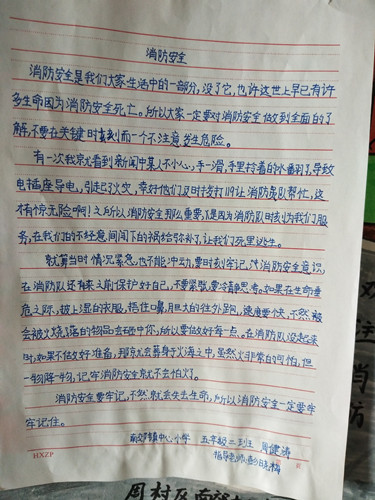 消防安全
消防安全是我们大家生活中的一部分，没了它，也许这世上早已有许
多生命因为消防安全死亡。所以大家一定要对消防安全做到全面的了
解，不要在关键时刻而一个不注意发生危险。
有一次我就看到新闻中某人不小心，手一滑，手里拎着的水番羽了，导致
电插座导电，引起了火灾，幸好他们及时拨打119让消防员队帮忙，这
才有惊无险啊！之所以消防安全那么重要，是因为消防队时刻为我们服
务，在我们的不经意间闯下的祸给弥补了，让我们死里逃生。
就算当时情况紧急，也不能冲动，要时刻牢记，消防安全意识，
在消防队还有来之前保护好自己，不要紧张，要冷静思考。如果在生命垂
危之际，披上湿的衣服，捂住口嘴，胆大的往外跑，速度要快，不然被
会被火烧，落的物品会砸中你，所以要做好每一点。在消防队没起来
时，如果不做好准备，那就会葬身于火海之中，虽然火非常的可怕，但
一物降一物，记牢消防安全就不会怕火了。
消防安全要牢记，不然就会失去生命，所以消防安全一定要牢
牢记住。
南郊镇中心小学 五年级二班 周健涛
指导老师：彭晓楠
HXZP
周村区南郊
消
防